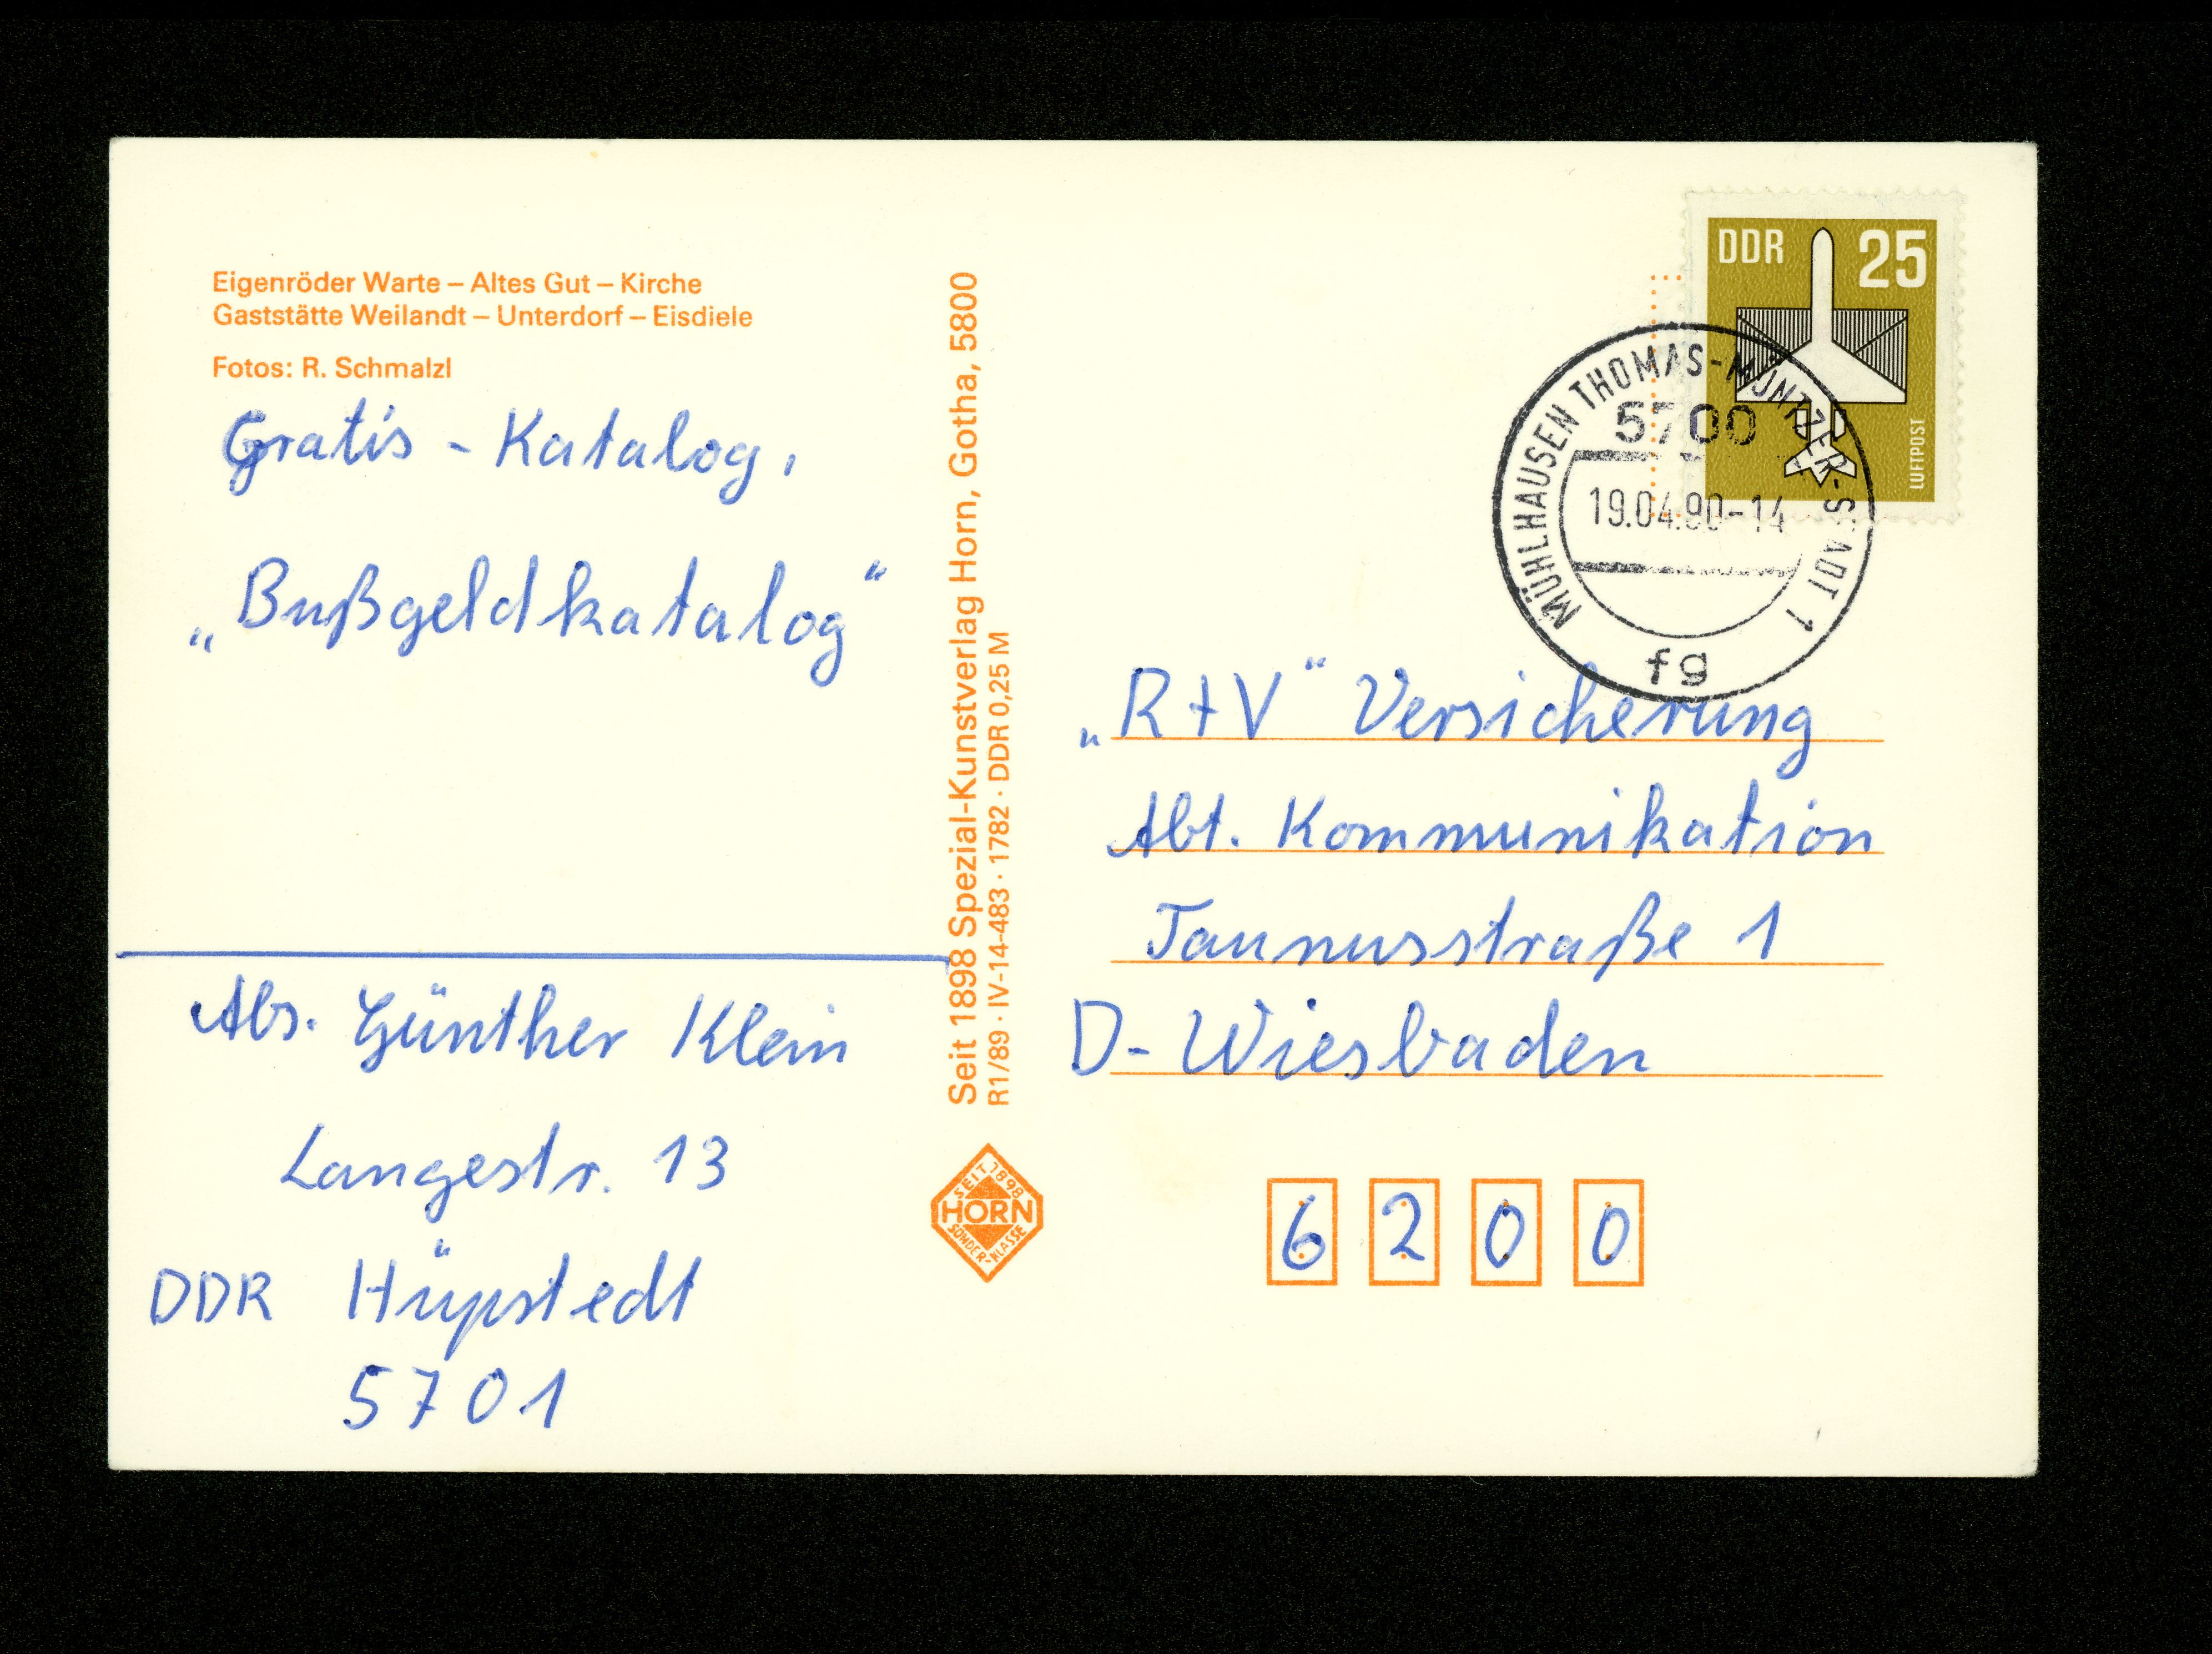 Eigenröder Warte – Altes Gut – Kirche
Gaststätte Weilandt – Unterdorf – Eisdiele
Fotos: R. Schmalzl
Gratis - Katalog,
„Bußgeldkatalog“
Abs. Günther Klein
Langestr. 13
DDR Hüpstedt
5701
Seit 1898 Spezial-Kunstverlag Horn, Gotha, 5800
R1/89 · IV-14-483 · 1782 · DDR 0,25 M
SEIT 1898
HORN
SONDER-KLASSE
DDR 25
LUFTPOST
MÜHLHAUSEN THOMAS-MÜNTZER-STADT 1
5700
19.04.90-14
fg
„R+V“ Versicherung
Abt. Kommunikation
Taunusstraße 1
D- Wiesbaden
6200